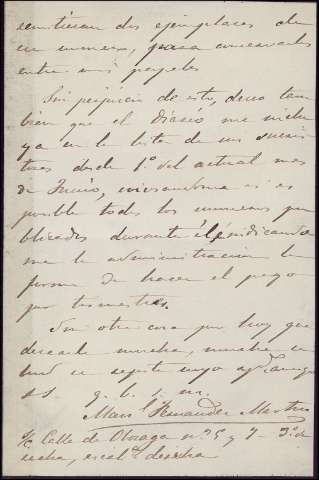 remitieran dos ejemplares de
un numero, para conservarlos
entre mis papeles
Sin perjuicio de esto, deseo tam
bien que el Diario me incluya
ya en la lista de sus suscri
tores desde 1º del actual mes
de Junio, enviandome si es
posible todos los numeros pu
blicados durante él, é indicando
me la administracion la
forma de hacer el pago
por trimestres.
Sin otra cosa por hoy que
desearle mucha,
de su afmo amigo
S S q. b. s. m.
Manl Fernandez Martin
S/c Calle de Olózaga nos 5 y 7 - 3º de
recha, escalª derecha